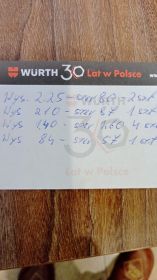 WÜRTH 30 Lat w Polsce
Wys. 225 - szer 80 - 2 szt
Wys 210 - szer 87 1 szt
Wys 140 - szer 160 4 szt
Wys 84 - szer 57 1 szt